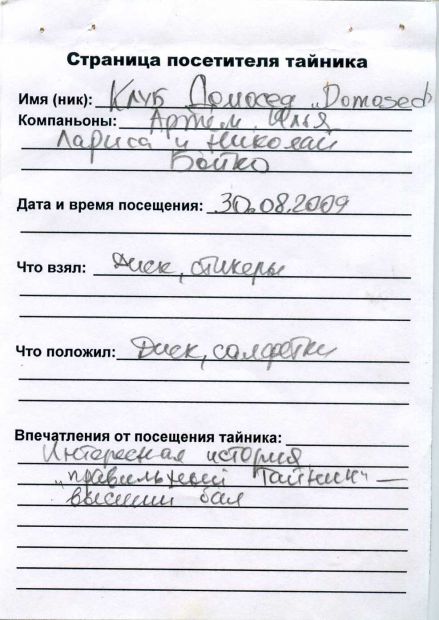 Страница посетителя тайника
Имя (ник): Клуб Домосед „Domosed"
Компаньоны: Артём, Илья
Лариса и Николай
Бойко
Дата и время посещения: 30.08.2009
Что взял: Диск, стикеры
Что положил: Диск, салфетки
Впечатления от посещения тайника:
Интересная история
„правильный тайник" —
высший бал